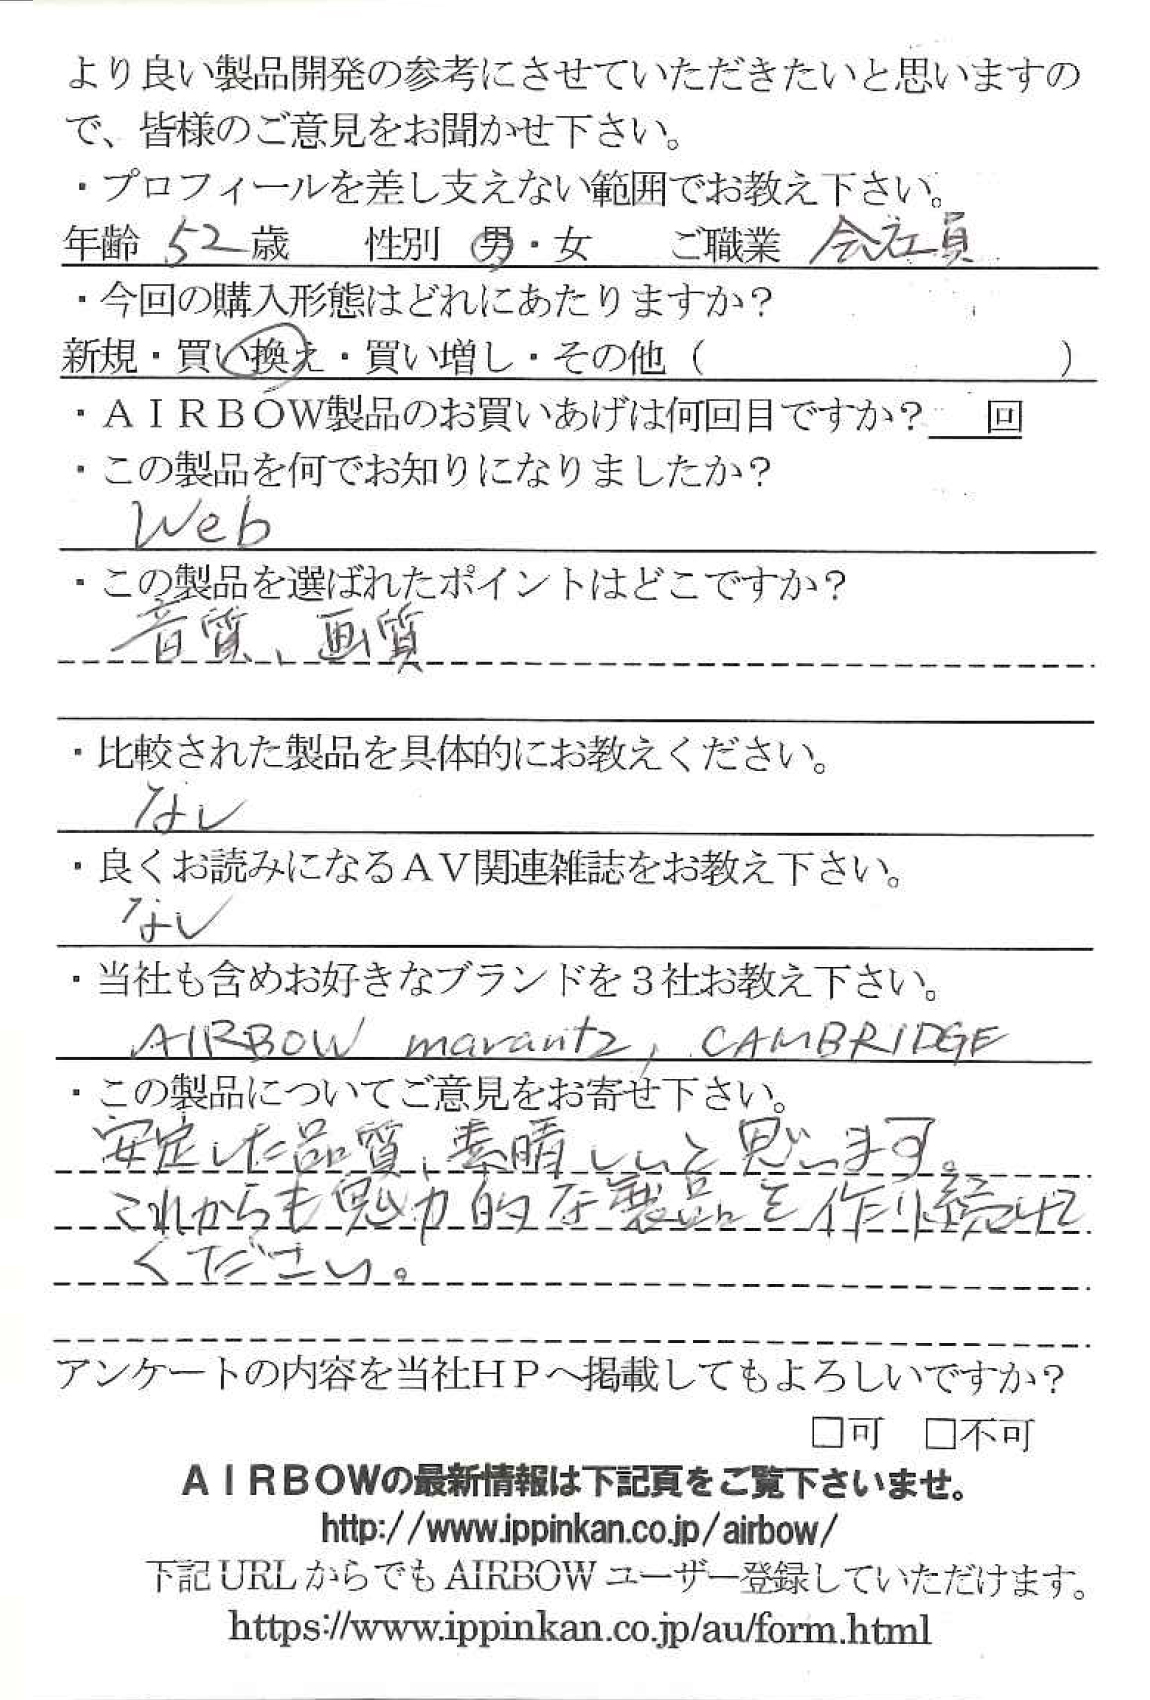 より良い製品開発の参考にさせていただきたいと思いますの
で、皆様のご意見をお聞かせ下さい。
・プロフィールを差し支えない範囲でお教え下さい。
年齢 52 歳 性別 男・女 ご職業 会社員
・今回の購入形態はどれにあたりますか？
新規・買い換え・買い増し・その他（ ）
・ＡＩＲＢＯＷ製品のお買いあげは何回目ですか？ 回
・この製品を何でお知りになりましたか？
Web
・この製品を選ばれたポイントはどこですか？
音質、画質
・比較された製品を具体的にお教えください。
なし
・良くお読みになるＡＶ関連雑誌をお教え下さい。
なし
・当社も含めお好きなブランドを３社お教え下さい。
AIRBOW marantz, CAMBRIDGE
・この製品についてご意見をお寄せ下さい。
安定した品質、素晴しいと思います。
これからも魅力的な製品を作り続けて
ください。
アンケートの内容を当社ＨＰへ掲載してもよろしいですか？
□可 □不可
ＡＩＲＢＯＷの最新情報は下記頁をご覧下さいませ。
http://www.ippinkan.co.jp/airbow/
下記 URL からでも AIRBOW ユーザー登録していただけます。
https://www.ippinkan.co.jp/au/form.html